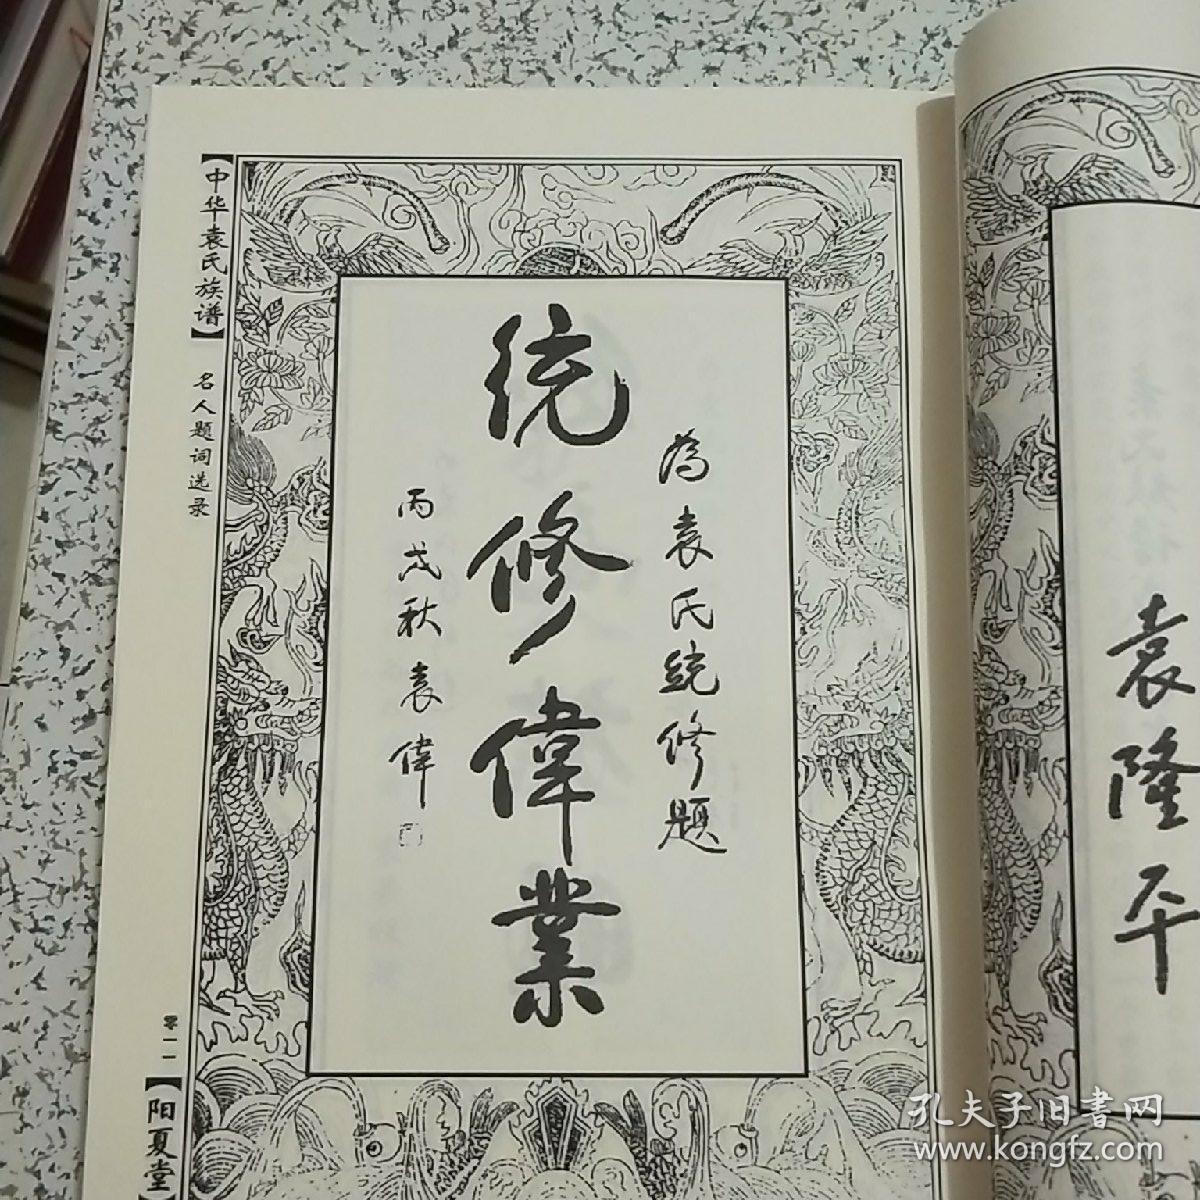 【中华袁氏族谱】
名人题词选录
零一一
【阳夏堂】
為袁氏統修題
統修偉業
丙戌秋袁偉
袁隆平
孔夫子旧書网
www.kongfz.com